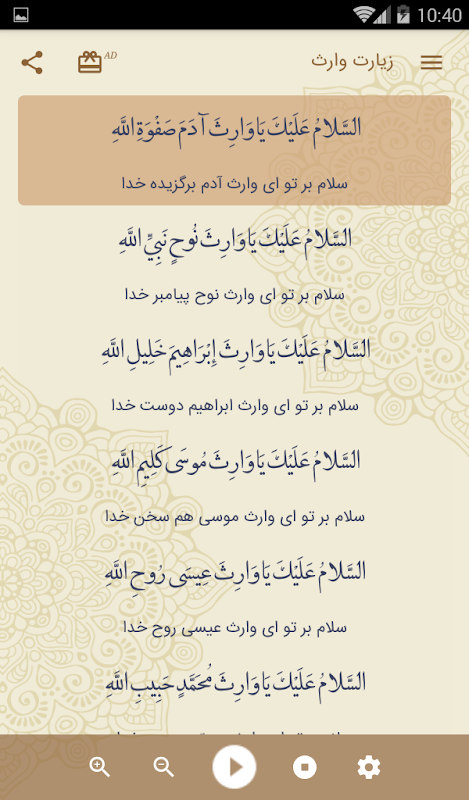 10:40
زیارت وارث
AD
السَّلامُ عَلَيْكَ يَا وَارِثَ آدَمَ صَفْوَةِ اللَّهِ
سلام بر تو ای وارث آدم برگزیده خدا
السَّلامُ عَلَيْكَ يَا وَارِثَ نُوحٍ نَبِيِّ اللَّهِ
سلام بر تو ای وارث نوح پیامبر خدا
السَّلامُ عَلَيْكَ يَا وَارِثَ إِبْرَاهِيمَ خَلِيلِ اللَّهِ
سلام بر تو ای وارث ابراهیم دوست خدا
السَّلامُ عَلَيْكَ يَا وَارِثَ مُوسَى كَلِيمِ اللَّهِ
سلام بر تو ای وارث موسی هم سخن خدا
السَّلامُ عَلَيْكَ يَا وَارِثَ عِيسَى رُوحِ اللَّهِ
سلام بر تو ای وارث عیسی روح خدا
السَّلامُ عَلَيْكَ يَا وَارِثَ مُحَمَّدٍ حَبِيبِ اللَّهِ